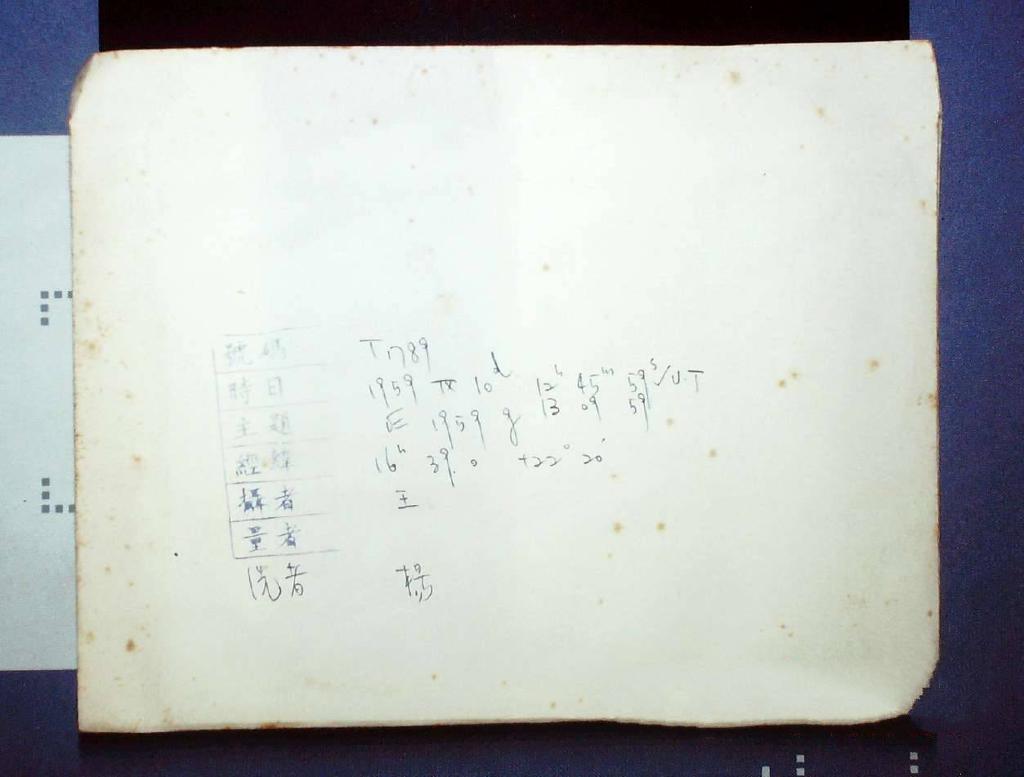 號碼 T1789
時日 1959 IX 10ᵈ 12ʰ 45ᵐ 59ˢ U.T
13 09 59
主題 1959 g
經緯 16ʰ 39.0 +22° 20'
攝者 王
量者
洗者 楊